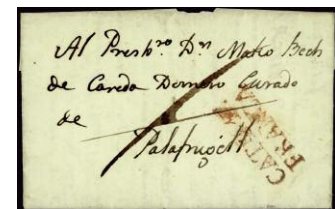 Al Presb.ro D.n Mateo Bech
de Careda Domero Curado
de
Palafrugell
CATALUÑA
FRANCO